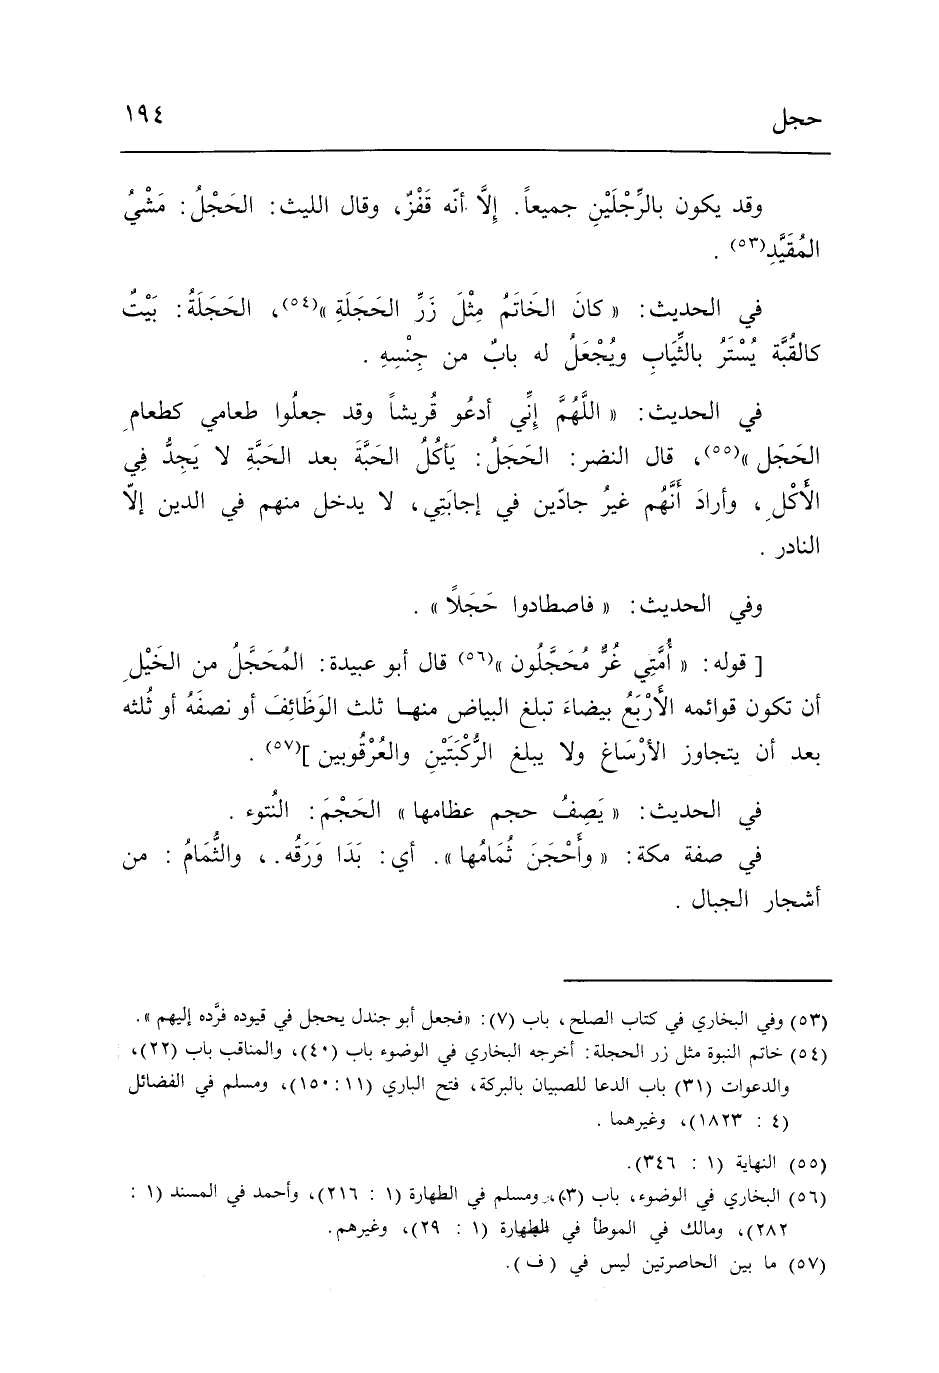 حجل
١٩٤
وقد يكون بالرِّجْلَيْنِ جميعاً. إِلاَّ أنّه قَفْزٌ، وقال الليث: الحَجْلُ: مَشْيُ
المُقَيَّدِ(٥٣) .
في الحديث: « كانَ الخَاتَمُ مِثْلَ زَرِّ الحَجَلَةِ »(٥٤)، الحَجَلَةُ: بَيْتٌ
كالقُبَّة يُسْتَرُ بالثِّيَابِ ويُجْعَلُ له بابٌ من جِنْسِهِ .
في الحديث: « اللَّهُمَّ إِنِّي أدعُو قُريشاً وقد جعلُوا طعامي كطعامِ
الحَجَل »(٥٥)، قال النضر: الحَجَلُ: يَأكُلُ الحَبَّةَ بعد الحَبَّةِ لا يَجِدُّ فِي
الأَكْلِ، وأرادَ أَنَّهُم غيرُ جادّين في إجابَتِي، لا يدخل منهم في الدين إلاّ
النادر .
وفي الحديث: « فاصطادوا حَجَلاً » .
[ قوله: « أُمَّتِي غُرٌّ مُحَجَّلُون »(٥٦) قال أبو عبيدة: المُحَجَّلُ من الخَيْلِ
أن تكون قوائمه الأَرْبَعُ بيضاءَ تبلغ البياض منها ثلث الوَظَائِفَ أو نصفَهُ أو ثُلثه
بعد أن يتجاوز الأرْسَاغ ولا يبلغ الرُّكْبَتَيْنِ والعُرْقُوبين ](٥٧) .
في الحديث: « يَصِفُ حجم عظامها » الحَجْمَ: النُتوء .
في صفة مكة: « وأَحْجَنَ ثُمَامُها ». أي: بَدَا وَرَقُه.، والثُّمَامُ : من
أشجار الجبال .
(٥٣) وفي البخاري في كتاب الصلح، باب (٧): «فجعل أبو جندل يحجل في قيوده فرَّده إليهم ».
(٥٤) خاتم النبوة مثل زر الحجلة: أخرجه البخاري في الوضوء باب (٤٠)، والمناقب باب (٢٢)،
والدعوات (٣١) باب الدعا للصبيان بالبركة، فتح الباري (١١: ١٥٠)، ومسلم في الفضائل
(٤ : ١٨٢٣)، وغيرهما .
(٥٥) النهاية (١ : ٣٤٦).
(٥٦) البخاري في الوضوء، باب (٣)، ومسلم في الطهارة (١ : ٢١٦)، وأحمد في المسند (١ :
٢٨٢)، ومالك في الموطأ في الطهارة (١ : ٢٩)، وغيرهم.
(٥٧) ما بين الحاصرتين ليس في ( ف ).